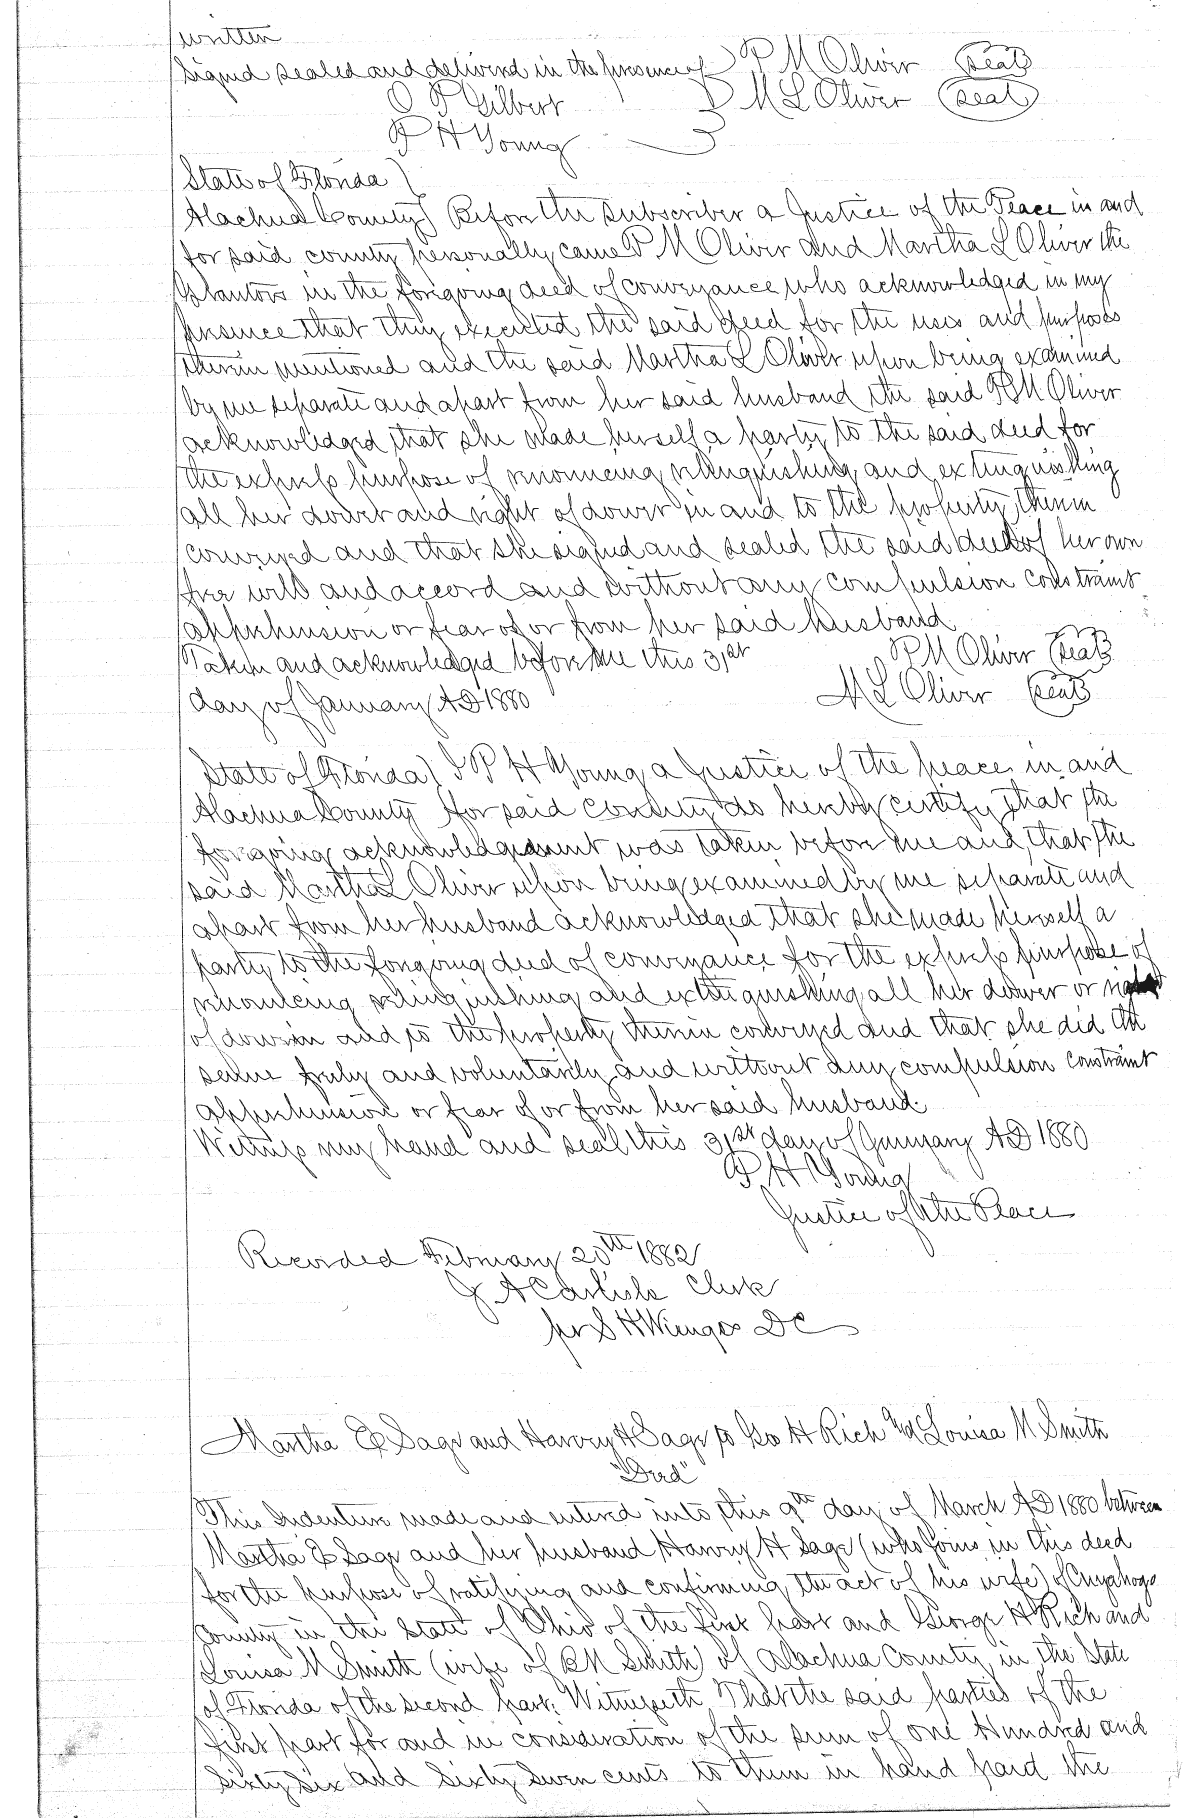 written
Signed sealed and delivered in the presence of P M Oliver (seal)
O P Gilbert M L Oliver (seal)
P H Young
State of Florida)
Alachua County) Before the subscriber a Justice of the Peace in and
for said county personally came P M Oliver and Martha L Oliver the
Grantors in the foregoing deed of conveyance who acknowledged in my
presence that they executed the said deed for the uses and purposes
therein mentioned and the said Martha L Oliver upon being examined
by me separate and apart from her said husband the said P M Oliver
acknowledged that she made herself a party to the said deed for
the express purpose of renouncing relinquishing and extinguishing
all her dower and right of dower in and to the property therein
conveyed and that she signed and sealed the said deed of her own
free will and accord and without any compulsion constraint
apprehension or fear of or from her said husband
Taken and acknowledged before me this 31st P M Oliver (seal)
day of January AD 1880 M L Oliver (seal)
State of Florida) I P H Young a Justice of the peace in and
Alachua County for said county do hereby certify that the
foregoing acknowledgement was taken before me and that the
said Martha L Oliver upon being examined by me separate and
apart from her husband acknowledged that she made herself a
party to the foregoing deed of conveyance for the express purpose of
renouncing relinquishing and extinguishing all her dower or right
of dower in and to the property therein conveyed and that she did the
same freely and voluntarily and without any compulsion constraint
apprehension or fear of or from her said husband.
Witness my hand and seal this 31st day of January AD 1880
P H Young
Justice of the Peace
Recorded February 20th 1882
J A Carlisle Clerk
per S H Wienges DC
Martha E Sage and Harvey H Sage to Geo H Rich and Louisa M Smith
"Deed"
This Indenture made and entered into this 9th day of March AD 1880 between
Martha E Sage and her husband Harvey H Sage (who joins in this deed
for the purpose of ratifying and confirming the act of his wife) of Cuyahoga
County in the State of Ohio of the first part and George H Rich and
Louisa M Smith (wife of B N Smith) of Alachua County in the State
of Florida of the second part; Witnesseth That the said parties of the
first part for and in consideration of the sum of one Hundred and
Sixty Six and Sixty Seven cents to them in hand paid the